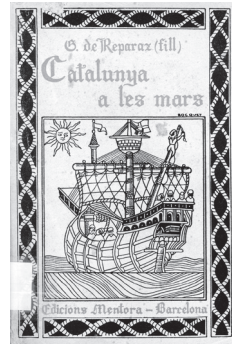 G. de Reparaz (fill)
Catalunya
a les mars
Edicions Mentora – Barcelona